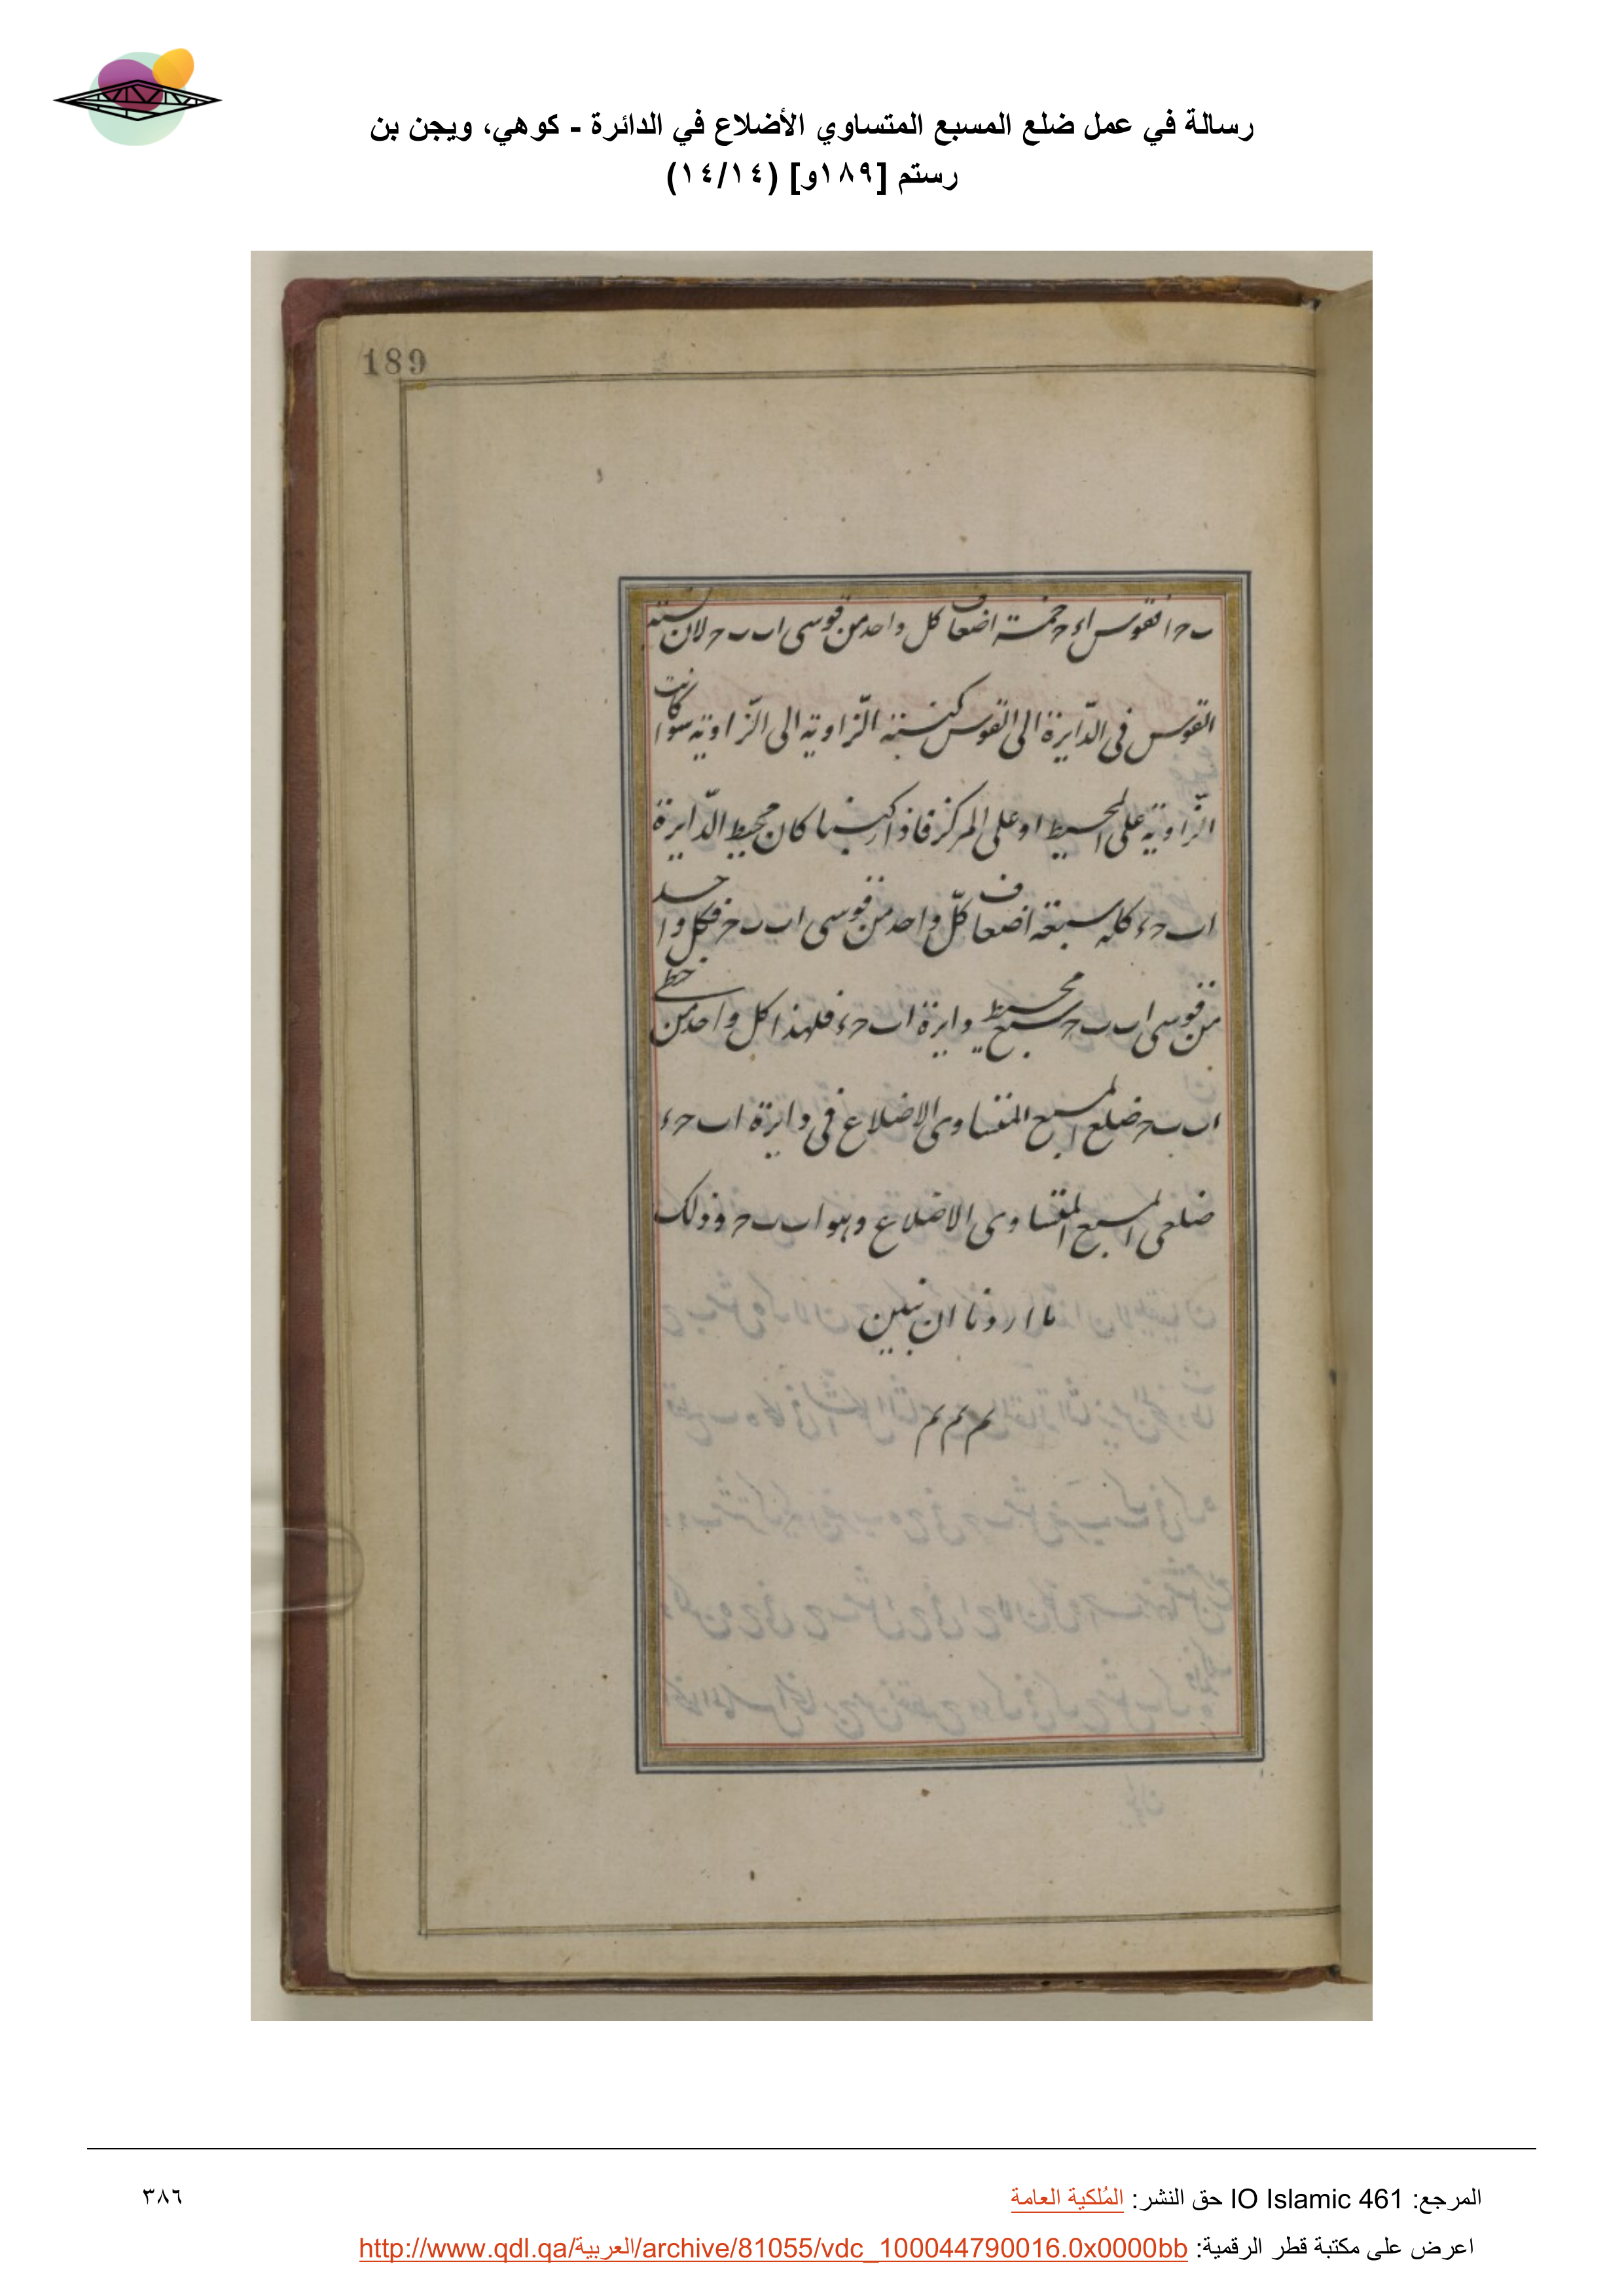 رسالة في عمل ضلع المسبع المتساوي الأضلاع في الدائرة - كوهي، ويجن بن
رستم [١٨٩و] (١٤/١٤)
189
ب ح ا فقوس ا ء ح خمسة اضعاف كل واحد من قوسى ا ب ب ح لان نسبة
القوس فى الدّايرة الى القوس كنسبة الزّاوية الى الزّاوية سوا كانت
الزّاوية على المحيط او على المركز فاذا ركبنا كان محيط الدّايرة
ا ب ح ء كله سبعة اضعاف كلّ واحد من قوسى ا ب ب ح فكل واحد
من قوسى ا ب ب ح سبع محيط دايرة ا ب ح ء فلهذا كل واحد من خطى
ا ب ب ح ضلع المسبع المتساوى الاضلاع فى دايرة ا ب ح ء
ضلعى المسبع المتساوى الاضلاع وهو ا ب ب ح وذلك
ما اردنا ان نبين
م م م
المرجع: IO Islamic 461 حق النشر: المُلكية العامة
٣٨٦
اعرض على مكتبة قطر الرقمية: http://www.qdl.qa/العربية/archive/81055/vdc_100044790016.0x0000bb